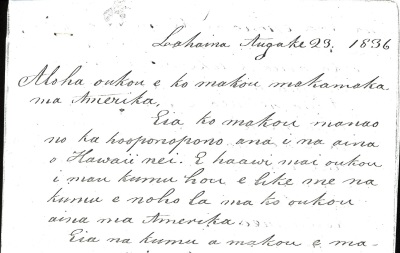 Lahaina Augake 23, 1836
Aloha oukou e ko makou makamaka
ma Amerika,
Eia ko makou manao
no ka hooponopono ana i na aina
o Hawaii nei. E haawi mai oukou
i mau kumu hou e like me na
kumu e noho la ma ko oukou
aina ma Amerika.
Eia na kumu a makou e ma-